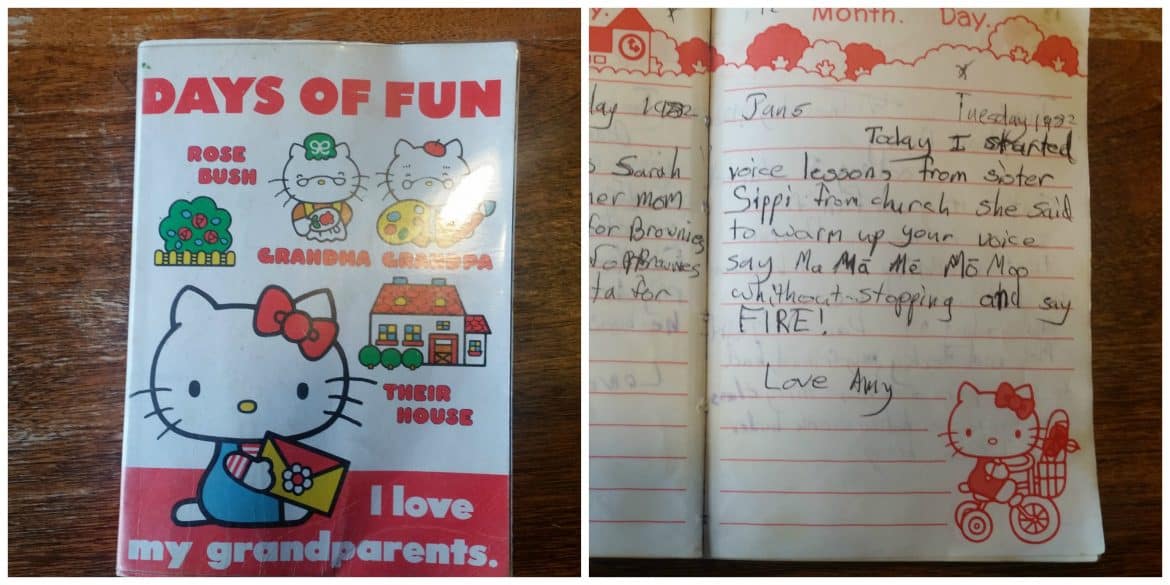 DAYS OF FUN
ROSE
BUSH
GRANDMA GRANDPA
THEIR
HOUSE
I love
my grandparents.
Sarah
her mom
for Brownies
ta for
Month. Day.
Jan 5 Tuesday 1982
Today I started
voice lessons from sister
Sippi from church she said
to warm up your voice
say Ma Mā Mē Mō Moo
whithout stopping and say
FIRE!
Love Amy